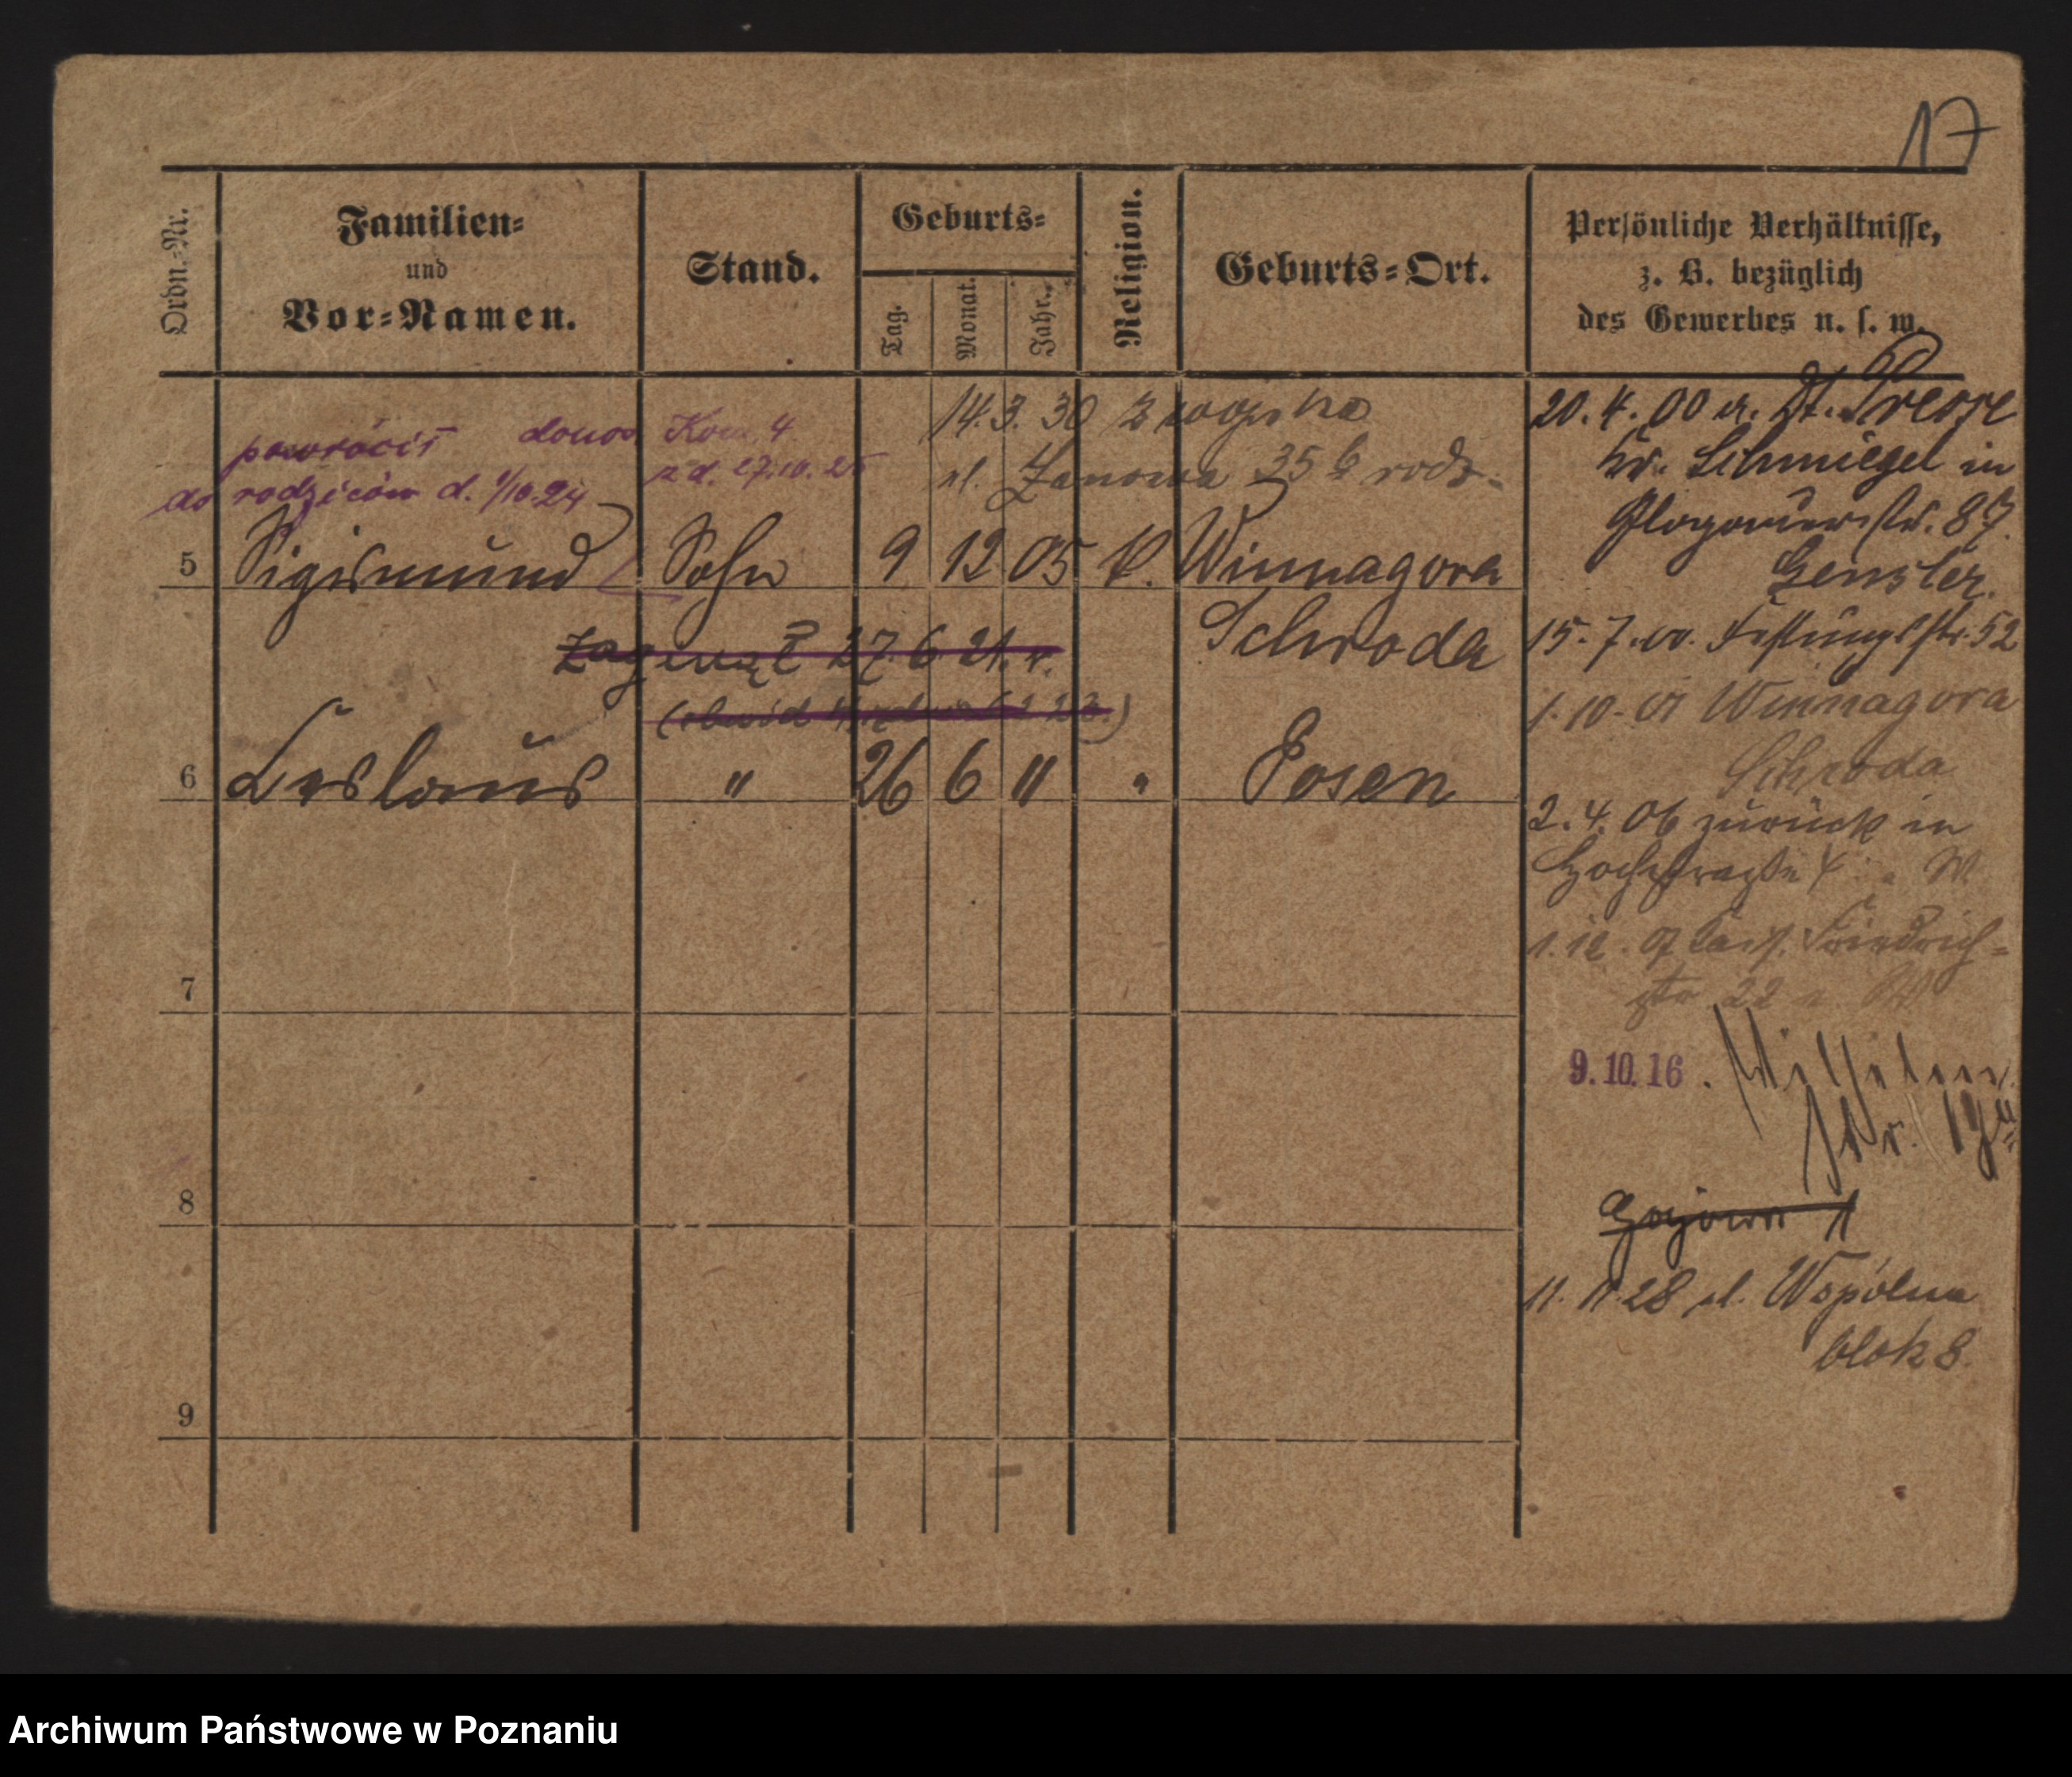 17
Ordn.-Nr.
Familien-
und
Vor-Namen.
Stand.
Geburts-
Tag.
Monat.
Jahr.
Religion.
Geburts-Ort.
Persönliche Verhältnisse,
z. B. bezüglich
des Gewerbes u. s. w.
powrócił donos Kom. 4.
do rodziców d. 1/10.24 z d. 27.10.25
14.3.30 z wojska
ul. 35 rodz.
5 Sigismund Sohn 9 12 05 k. Winnagora
Schroda
Zaginął 27.6.21. r.
6 Ceslaus " 26 6 " " Posen
7
8
9
20.4.00 a.
Kr. Schmiegel in
Glogauerstr. 87.
Gensler.
15.7.00. Festungsstr. 52
1.10.01 Winnagora
Schroda
2.4.06 zurück in
Hochstraße 4 W
1.12.07 Kais. Friedrich-
str 22
9.10.16. Wilhelm
str. 19
11.11.28 ul. Wspólna
blok 8.
Archiwum Państwowe w Poznaniu